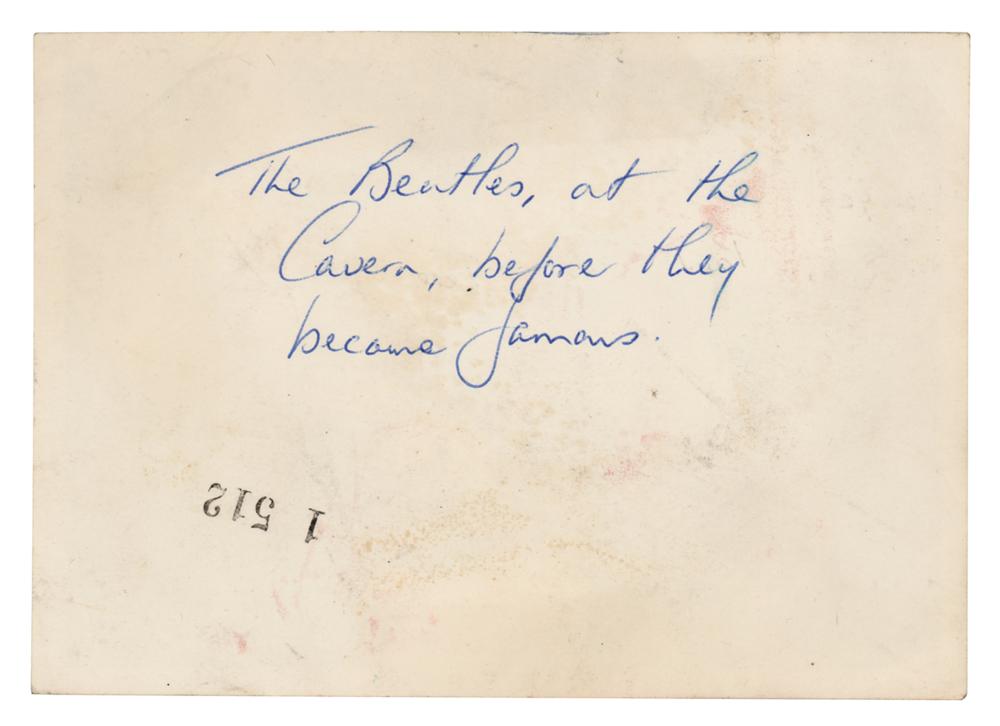 The Beatles, at the
Cavern, before they
became famous.
1 512